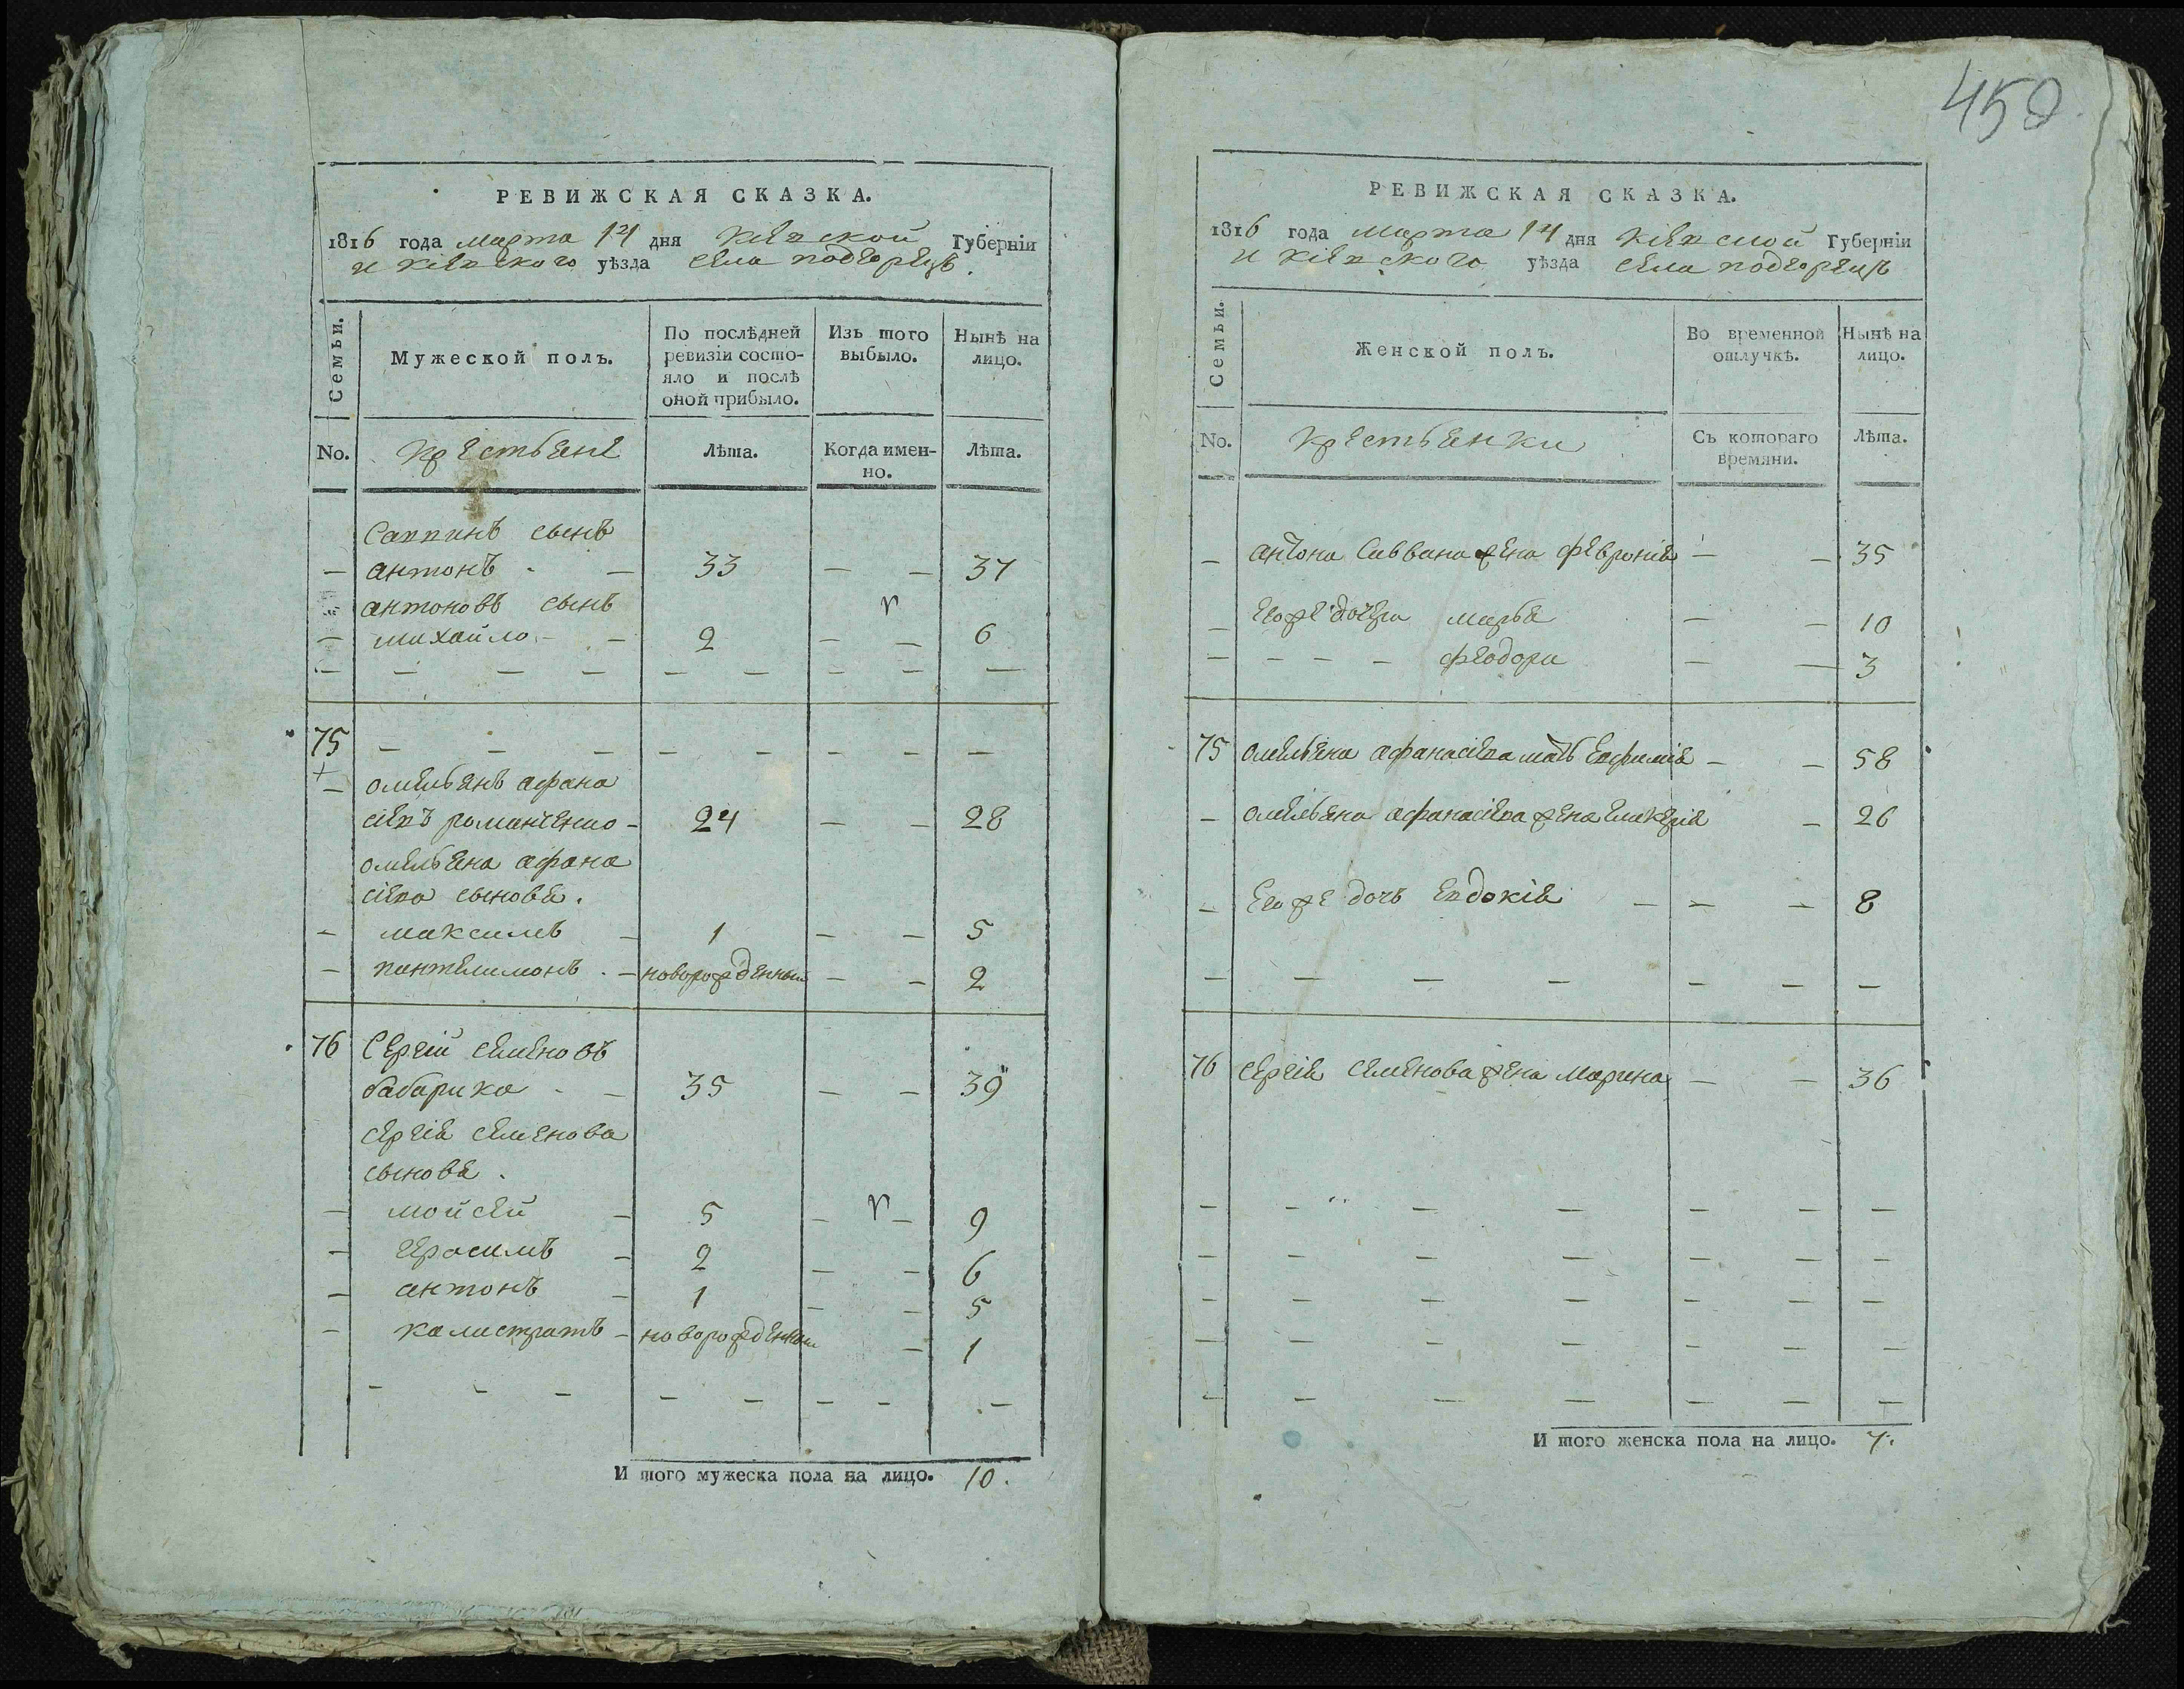 458
РЕВИЖСКАЯ СКАЗКА.
1816 года марта 14 дня Кіевской Губерніи
и Кіевского уѣзда села подгорецъ.
Семьи.
Мужеской полъ.
По послѣдней ревизіи состояло и послѣ оной прибыло.
Изъ того выбыло.
Нынѣ на лицо.
No. Крестьяне Лѣта. Когда именно. Лѣта.
Саввинъ сынъ
— антонъ — 33 — — 37
антоновъ сынъ
— михайло — 2 — — 6
— — — — — — — — —
75 — — — — — — — —
омельянъ афана
сіевъ романченко — 24 — — 28
омельяна афана
сіева сыновья.
— максимъ — 1 — — 5
— пантелимонъ — новорожденный — — 2
76 Сергій семеновъ
бабарика — 35 — — 39
сергія семенова
сыновья.
— мойсей — 5 — — 9
— герасимъ — 2 — — 6
— антонъ — 1 — — 5
— калистратъ — новорожденный — 1
— — — — — — — —
И того мужеска пола на лицо. 10.
РЕВИЖСКАЯ СКАЗКА.
1816 года марта 14 дня Кіевской Губерніи
и Кіевского уѣзда села подгорецъ
Семьи.
Женской полъ.
Во временной отлучкѣ.
Нынѣ на лицо.
No. Крестьянки Съ котораго времяни. Лѣта.
— антона Саввина жена февронія — — 35
— его же дочери марья — — 10
— — — — феодора — — 3
75 омельяна афанасіева мать Евфимія — — 58
— омельяна афанасіева жена гликерія — 26
— Его же дочь Евдокія — — — 8
— — — — — — —
76 сергія семенова жена Марина — — 36
— — — — — — —
— — — — — — —
— — — — — — —
— — — — — — —
— — — — — — —
И того женска пола на лицо. 7.